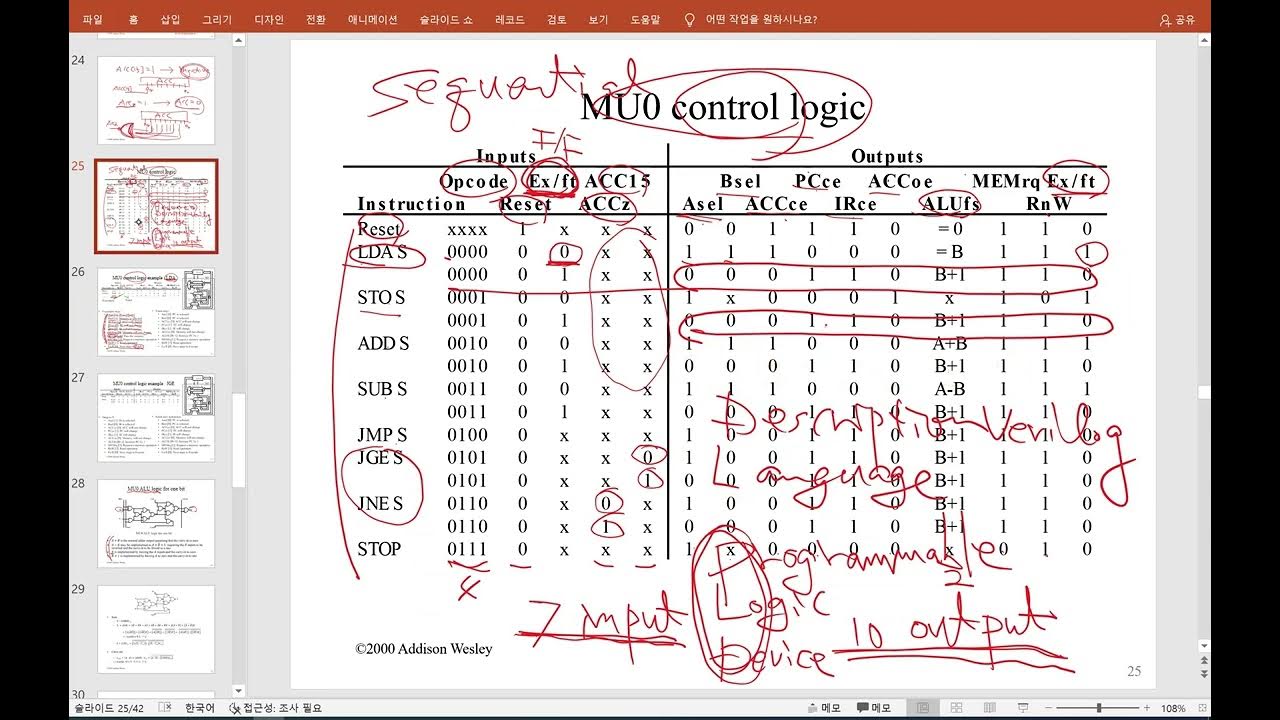 파일 홈 삽입 그리기 디자인 전환 애니메이션 슬라이드 쇼 레코드 검토 보기 도움말 어떤 작업을 원하시나요? 공유
24
25
26
27
28
29
30
sequential
MU0 control logic
F/F
Inputs Outputs
Opcode Ex/ft ACC15 Bsel PCce ACCoe MEMrq Ex/ft
Instruction Reset ACCz Asel ACCce IRce ALUfs RnW
Reset xxxx 1 x x x 0 0 1 1 1 0 =0 1 1 0
LDA S 0000 0 0 x x 1 1 1 0 0 0 =B 1 1 1
0000 0 1 x x 0 0 0 1 1 0 B+1 1 1 0
STO S 0001 0 0 x x 1 x 0 0 0 1 x 1 0 1
0001 0 1 x x 0 0 0 1 1 0 B+1 1 1 0
ADD S 0010 0 0 x x 1 1 1 0 0 0 A+B 1 1 1
0010 0 1 x x 0 0 0 1 1 0 B+1 1 1 0
SUB S 0011 0 0 x x 1 1 1 0 0 0 A-B 1 1 1
0011 0 1 x x 0 0 0 1 1 0 B+1 1 1 0
JMP S 0100 0 x x x 1 0 0 1 1 0 B+1 1 1 0
JGE S 0101 0 x x 0 1 0 0 1 1 0 B+1 1 1 0
0101 0 x x 1 0 0 0 1 1 0 B+1 1 1 0
JNE S 0110 0 x 0 x 1 0 0 1 1 0 B+1 1 1 0
0110 0 x 1 x 0 0 0 1 1 0 B+1 1 1 0
STOP 0111 0 x x x 1 x 0 0 0 0 x 0 1 0
Description Verilog
Language
4
2
7 input
Programmable
Logic
Device
10 output
©2000 Addison Wesley
25
슬라이드 25/42 한국어 접근성: 조사 필요 메모 메모 108%